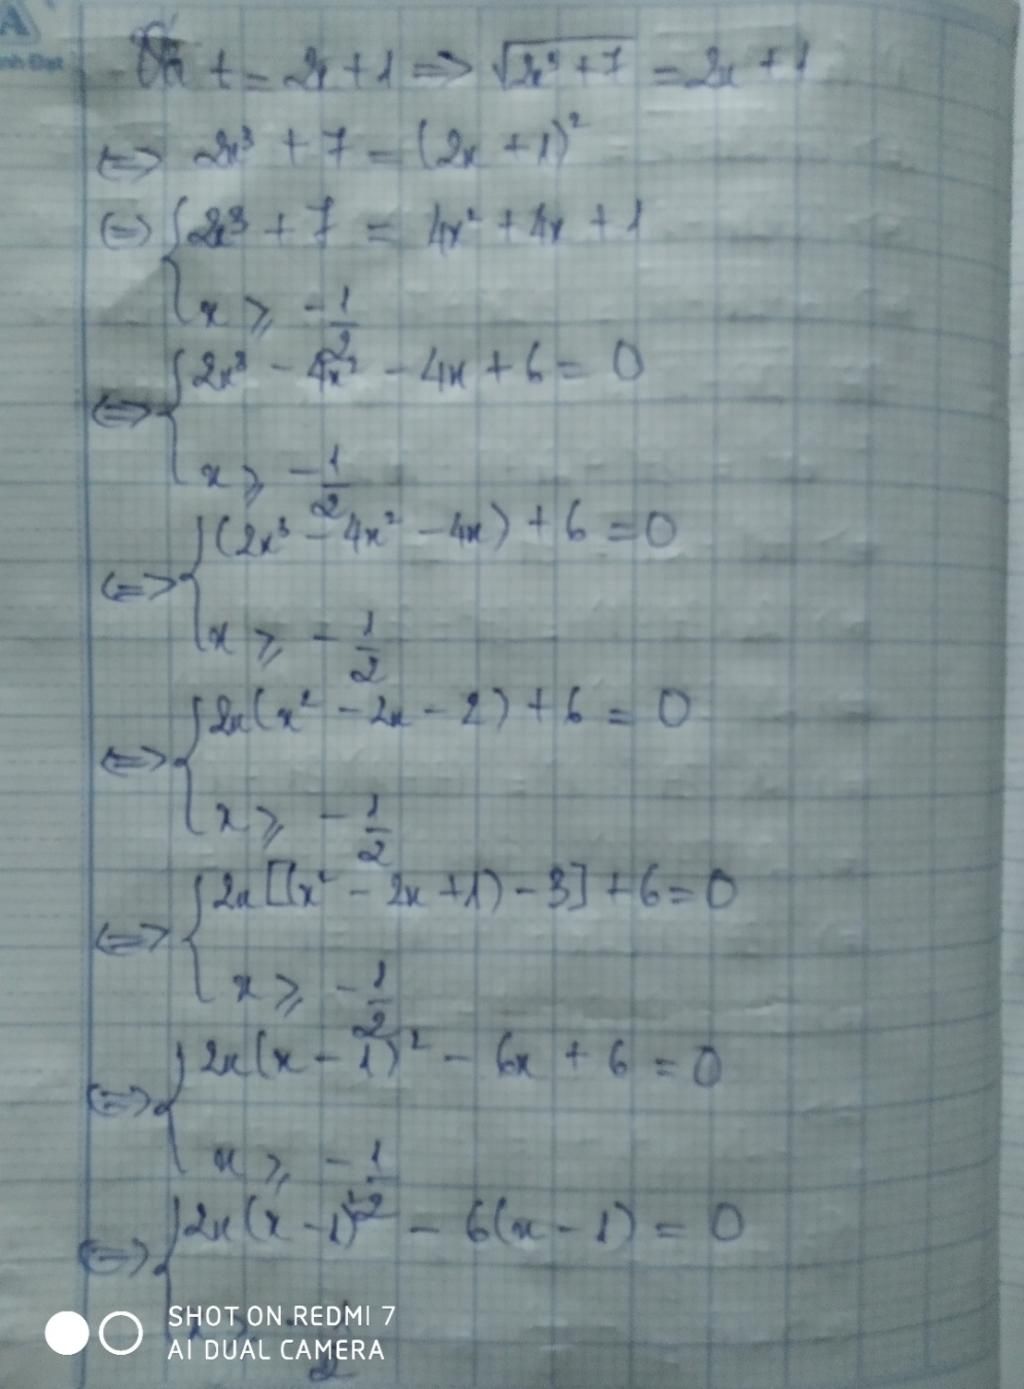 A
t = 2x + 1 => √2x³ + 7 = 2x + 1
<=> 2x³ + 7 = (2x + 1)²
<=> { 2x³ + 7 = 4x² + 4x + 1
x ≥ -1/2
<=> { 2x³ - 4x² - 4x + 6 = 0
x ≥ -1/2
<=> { (2x³ - 4x² - 4x) + 6 = 0
x ≥ -1/2
<=> { 2x(x² - 2x - 2) + 6 = 0
x ≥ -1/2
<=> { 2x[(x² - 2x + 1) - 3] + 6 = 0
x ≥ -1/2
<=> { 2x(x - 1)² - 6x + 6 = 0
x ≥ -1/2
<=> { 2x(x - 1)² - 6(x - 1) = 0
SHOT ON REDMI 7
AI DUAL CAMERA